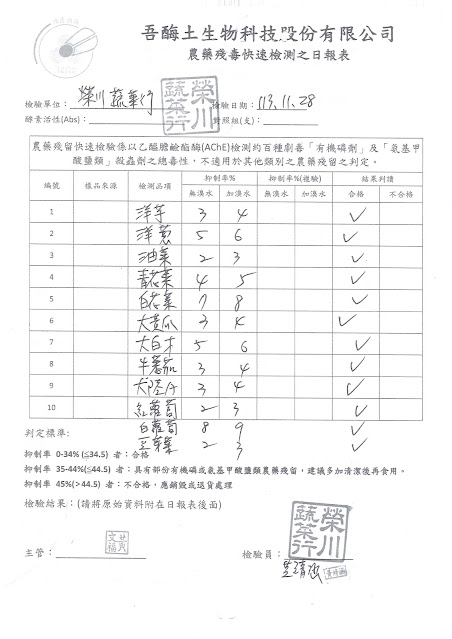 吾酶土生物科技股份有限公司
農藥殘毒快速檢測之日報表
檢驗單位：榮川蔬菜行 檢驗日期：113.11.28
酵素活性(Abs)： 對照組(支)：
榮川蔬菜行
農藥殘留快速檢驗係以乙醯膽鹼酯酶(AChE)檢測約百種劇毒「有機磷劑」及「氨基甲
酸鹽類」殺蟲劑之總毒性，不適用於其他類別之農藥殘留之判定。
編號 樣品來源 檢測品項 抑制率% 抑制率%(複驗) 結果判讀
無溴水 加溴水 無溴水 加溴水 合格 不合格
1 洋芋 3 4 ✓
2 洋蔥 5 6 ✓
3 油菜 2 3 ✓
4 青花菜 4 5 ✓
5 白花菜 7 8 ✓
6 大黃瓜 3 4 ✓
7 大白才 5 6 ✓
8 牛蕃茄 3 4 ✓
9 大陸A 3 4 ✓
10 紅蘿蔔 2 3 ✓
白蘿蔔 8 9 ✓
豆芽菜 2 3 ✓
判定標準：
抑制率 0-34% (≦34.5) 者：合格
抑制率 35-44%(≦44.5) 者：具有部份有機磷或氨基甲酸鹽類農藥殘留，建議多加清潔後再食用。
抑制率 45%(>44.5) 者：不合格，應銷毀或退貨處理
檢驗結果：(請將原始資料附在日報表後面)
榮川蔬菜行
主管： 檢驗員：